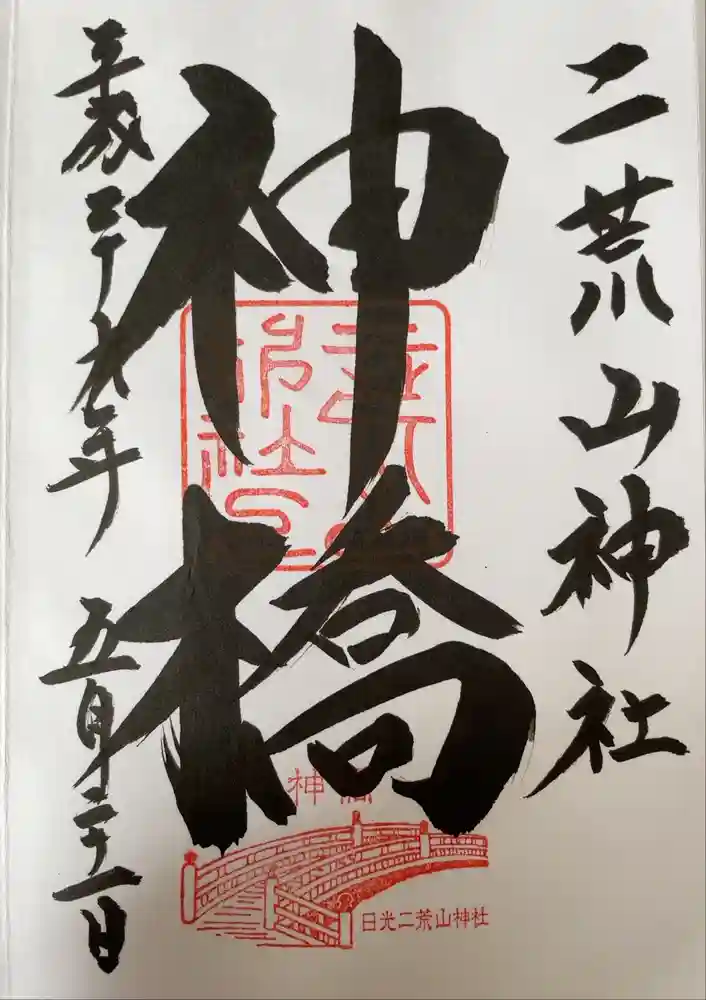 二荒山神社
神橋
平成二十九年 五月二十一日
神橋
日光二荒山神社